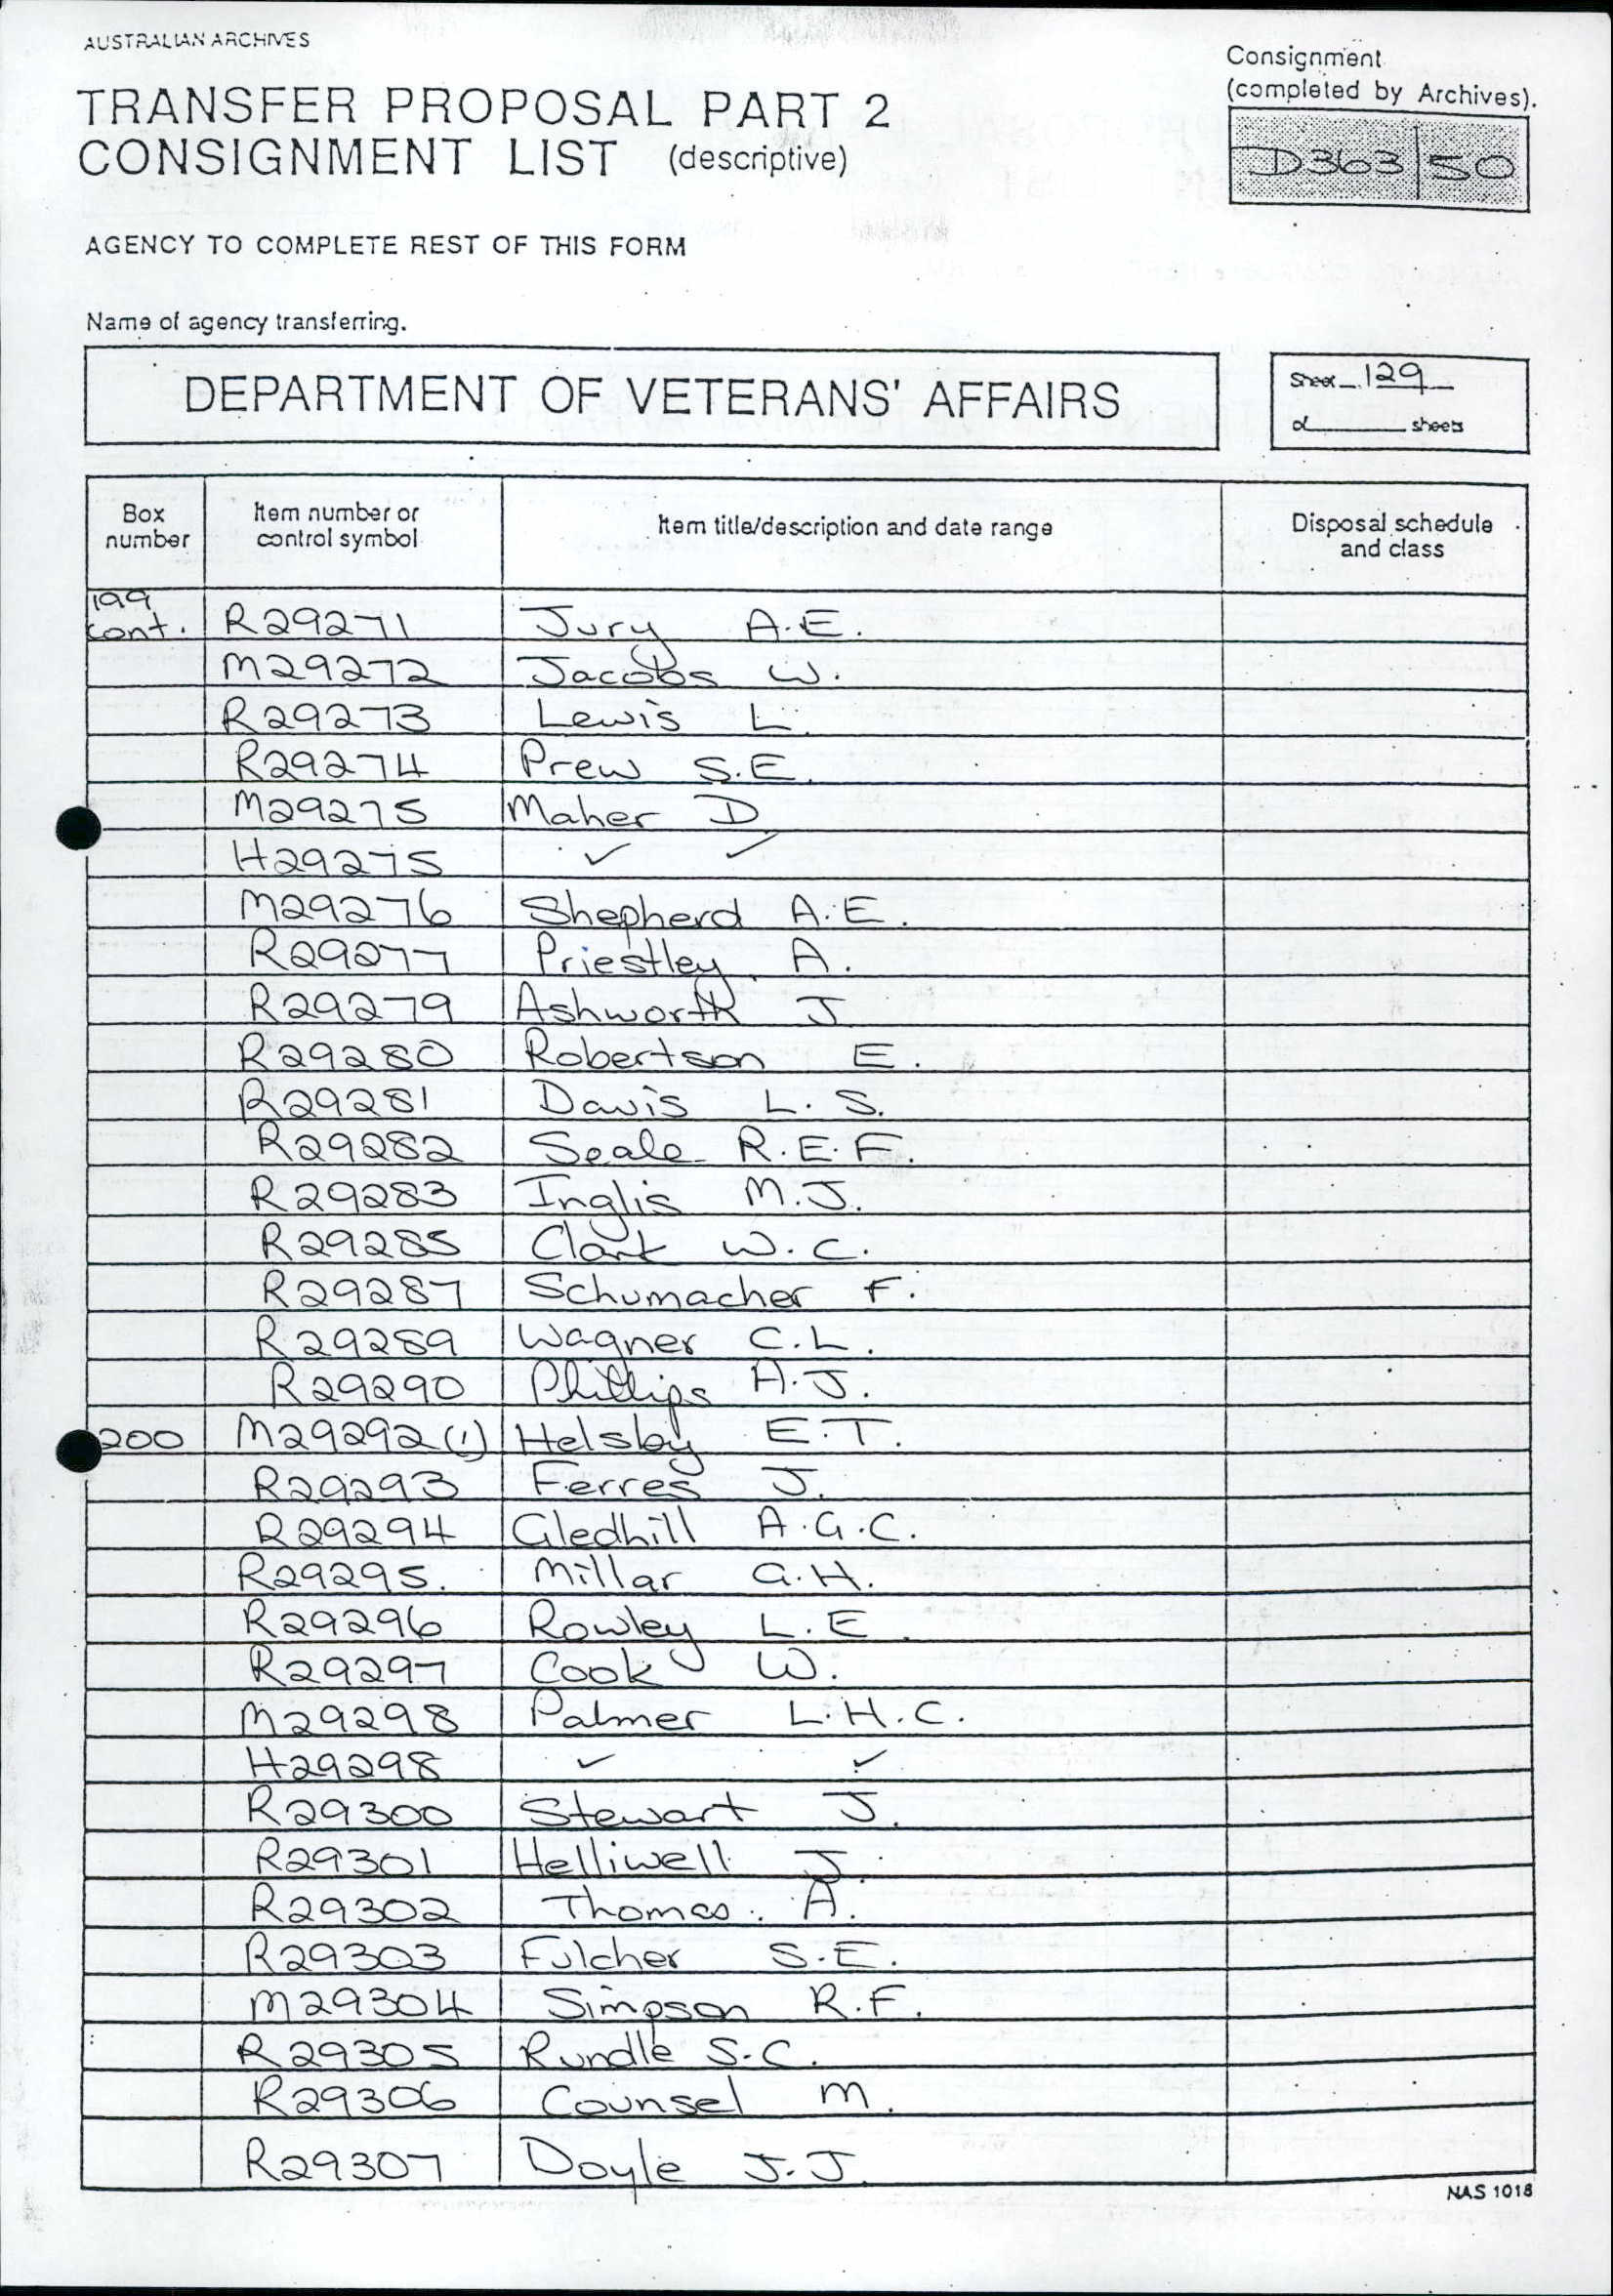 AUSTRALIAN ARCHIVES
TRANSFER PROPOSAL PART 2
CONSIGNMENT LIST (descriptive)
Consignment
(completed by Archives).
D363/50
AGENCY TO COMPLETE REST OF THIS FORM
Name of agency transferring.
DEPARTMENT OF VETERANS' AFFAIRS
Sheet 129
of sheets
Box number Item number or control symbol Item title/description and date range Disposal schedule and class
199 cont. R29271 Jury A.E.
M29272 Jacobs W.
R29273 Lewis L.
R29274 Prew S.E.
M29275 Maher D
H29275 ✓ ✓
M29276 Shepherd A.E.
R29277 Priestley A.
R29279 Ashworth J
R29280 Robertson E.
R29281 Davis L.S.
R29282 Seale R.E.F.
R29283 Inglis M.J.
R29285 Clark W.C.
R29287 Schumacher F.
R29289 Wagner C.L.
R29290 Phillips A.J.
200 M29292(1) Helsby E.T.
R29293 Ferres J.
R29294 Gledhill A.G.C.
R29295. Millar G.H.
R29296 Rowley L.E.
R29297 Cook W.
M29298 Palmer L.H.C.
H29298 ✓ ✓
R29300 Stewart J.
R29301 Helliwell J.
R29302 Thomas. A.
R29303 Fulcher S.E.
M29304 Simpson R.F.
R29305 Rundle S.C.
R29306 Counsel M.
R29307 Doyle J.J.
NAS 1018